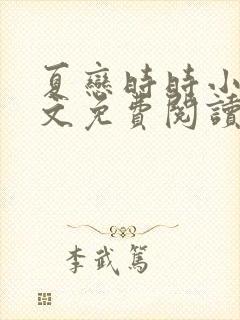 夏戀時時小
文免費閱讀
李武篤